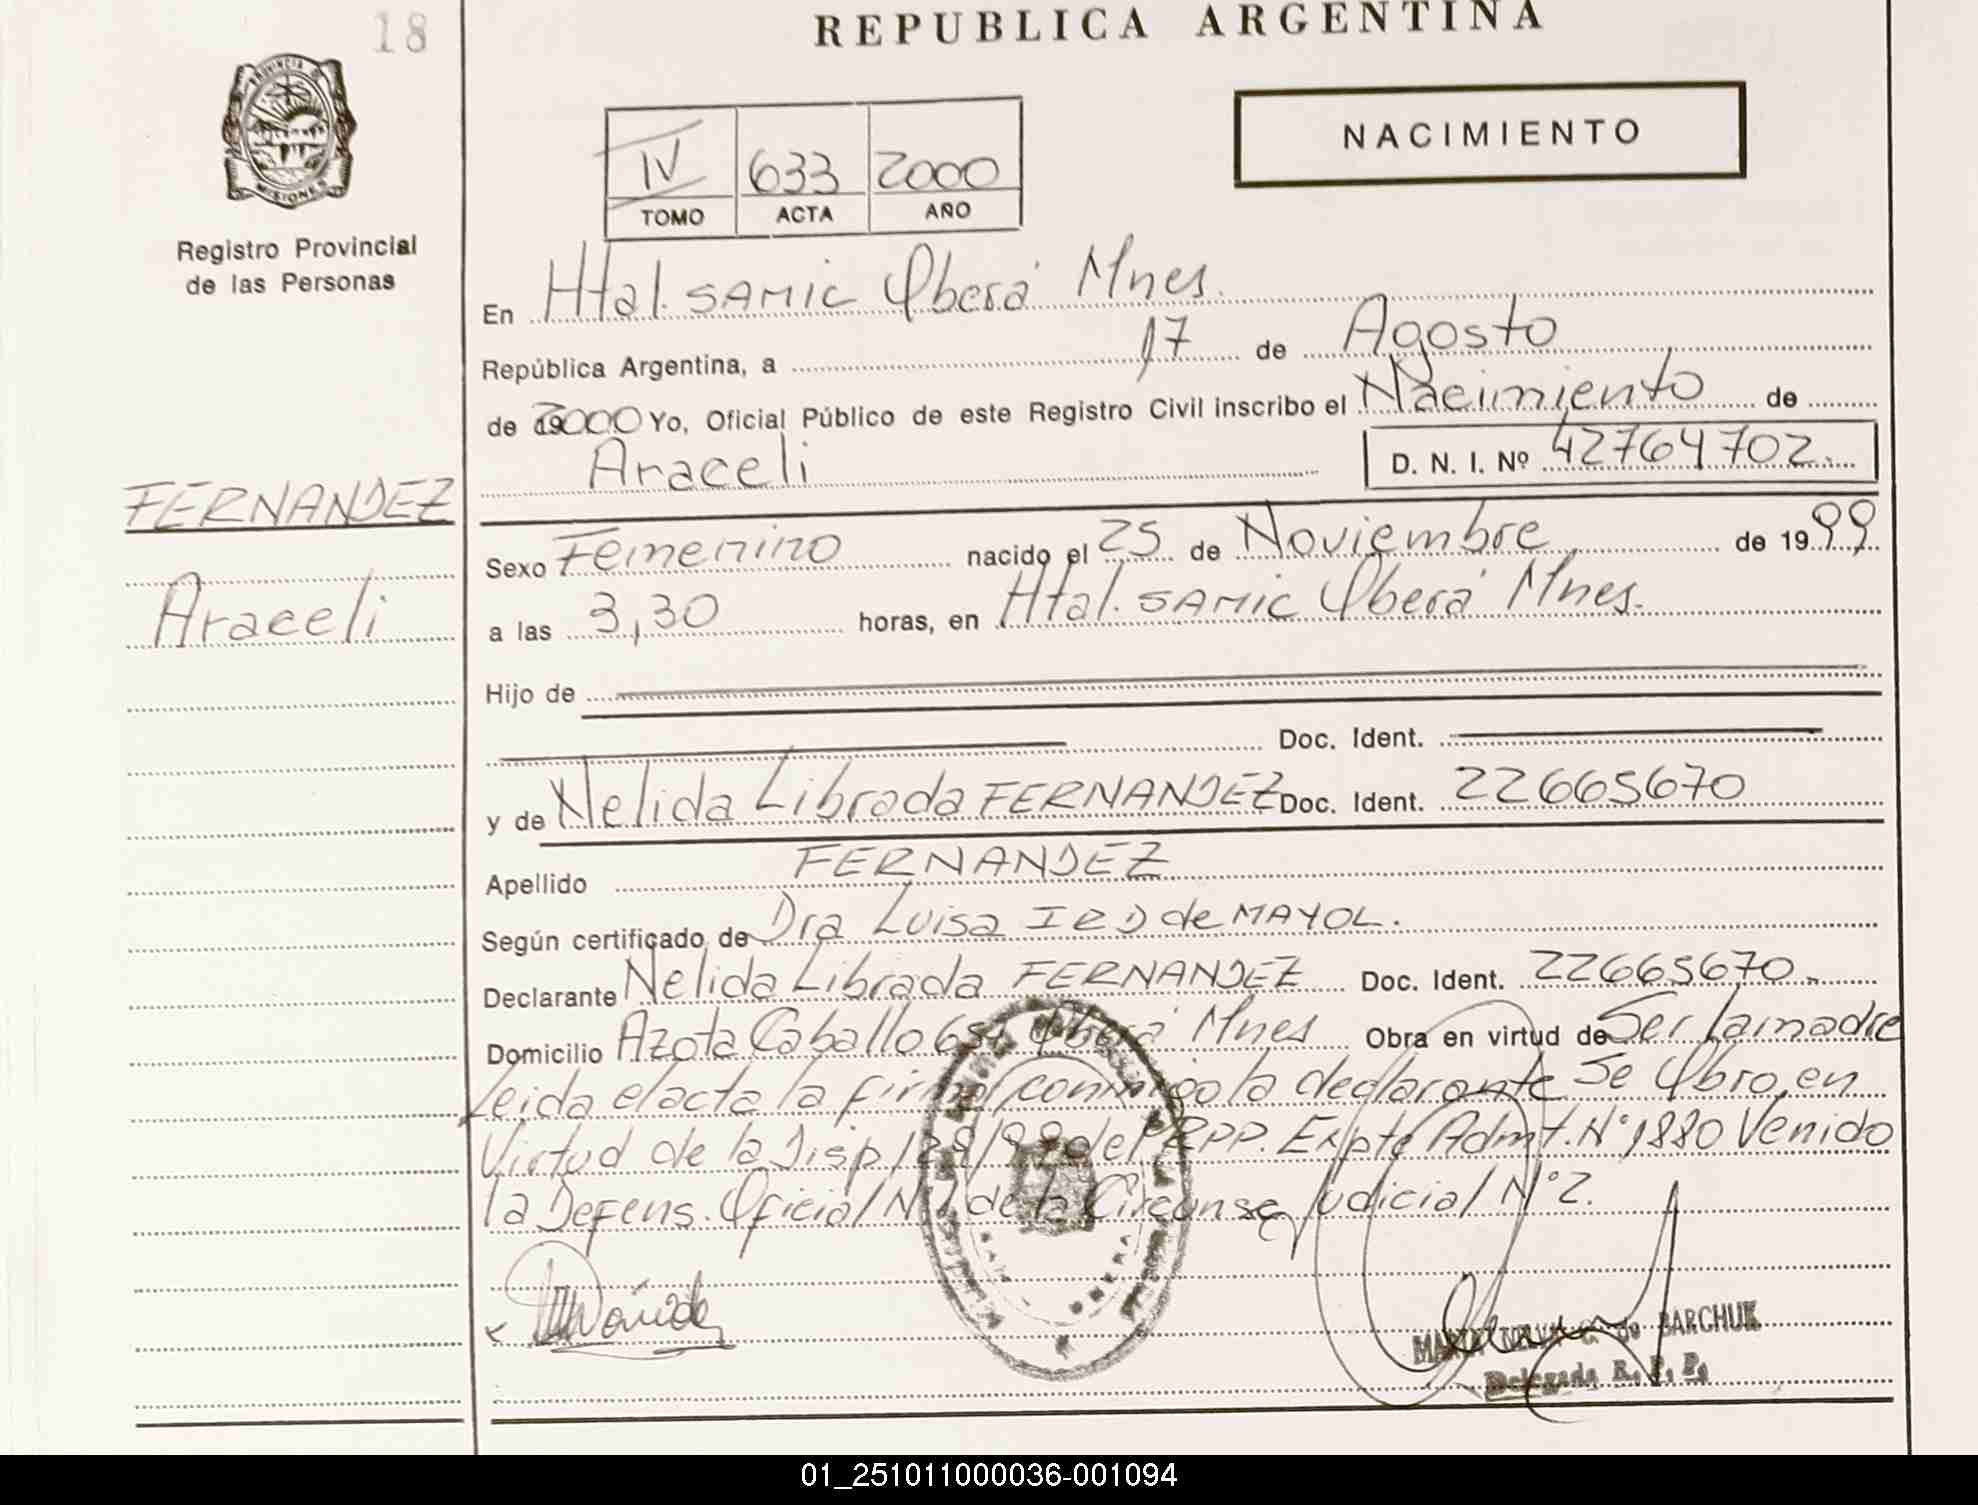 18
REPUBLICA ARGENTINA
PROVINCIA D
MISIONES
Registro Provincial
de las Personas
IV 633 2000
TOMO ACTA AÑO
NACIMIENTO
En Htal. SAMIC Oberá Mnes.
República Argentina, a 17 de Agosto
de 2000 Yo, Oficial Público de este Registro Civil inscribo el Nacimiento de
Araceli D. N. I. Nº 42764702.
FERNANDEZ
Araceli
Sexo Femenino nacido el 25 de Noviembre de 1999
a las 3,30 horas, en Htal. SAMIC Oberá Mnes.
Hijo de
Doc. Ident.
y de Nelida Librada FERNANDEZ Doc. Ident. 22665670
Apellido FERNANDEZ
Según certificado de Dra Luisa de MAYOL.
Declarante Nelida Librada FERNANDEZ Doc. Ident. 22665670.
Domicilio Azota Caballo Oberá Mnes Obra en virtud de Ser la madre
Leida el acta la firma conmigo la declarante Se Obro en
Virtud de la Disp 128/99 del RPP. Expte Admt. Nº 1880 Venido
la Defens. Oficial Nº de la Circunsc Judicial Nº 2.
OBERA
de BARCHUK
Delegada R. P. P.
01_251011000036-001094